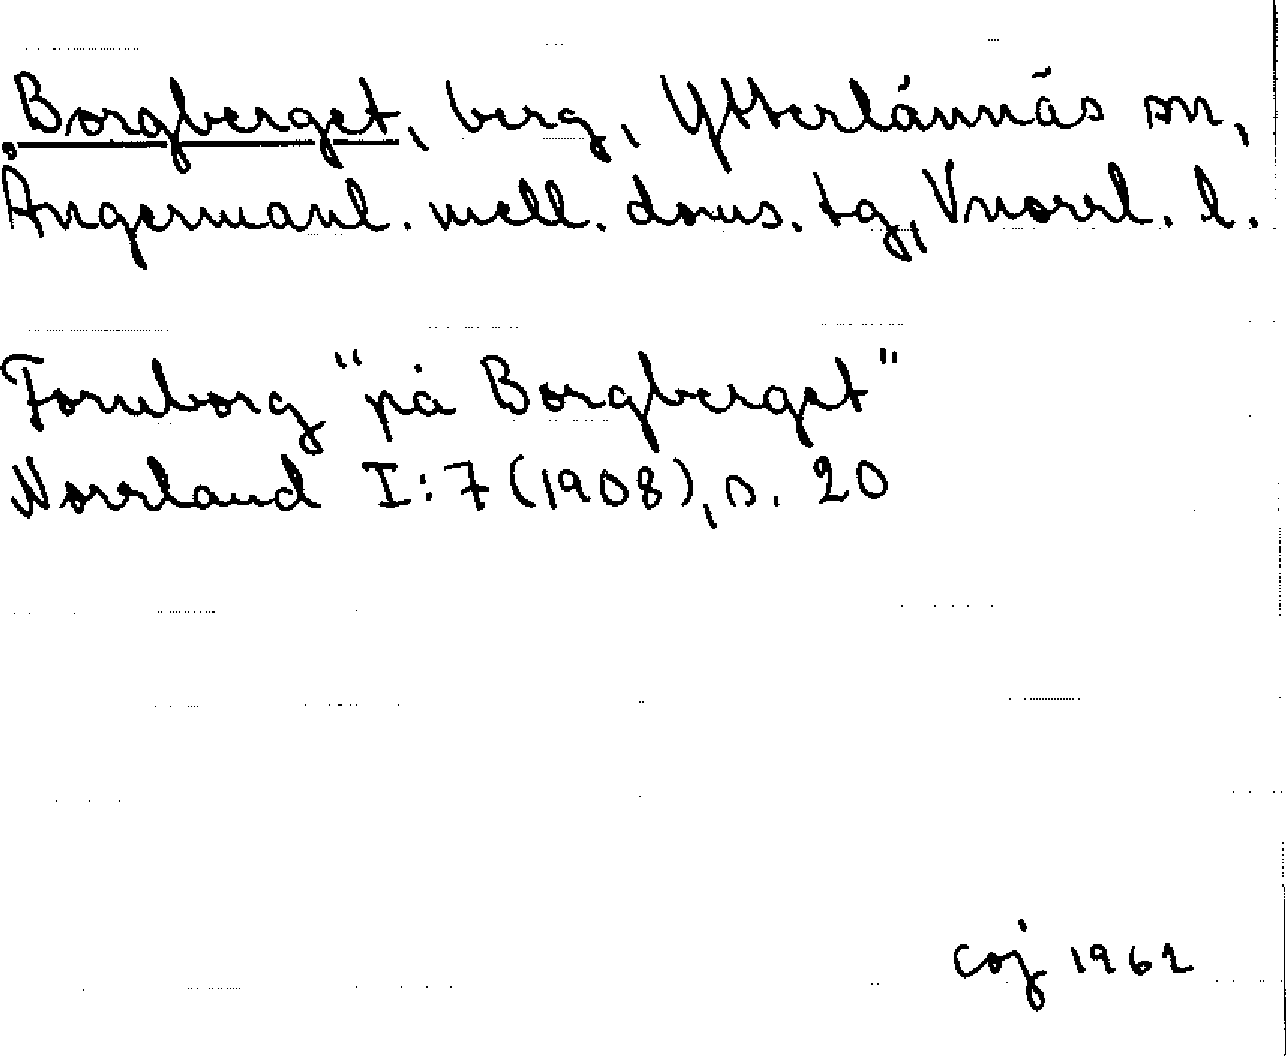 Borgberget, berg, Ytterlännäs sn,
Ångermanl. mell. doms. tg, Vnorrl. l.
Fornborg "på Borgberget"
Norrland I:7 (1908), s. 20
Coj 1962